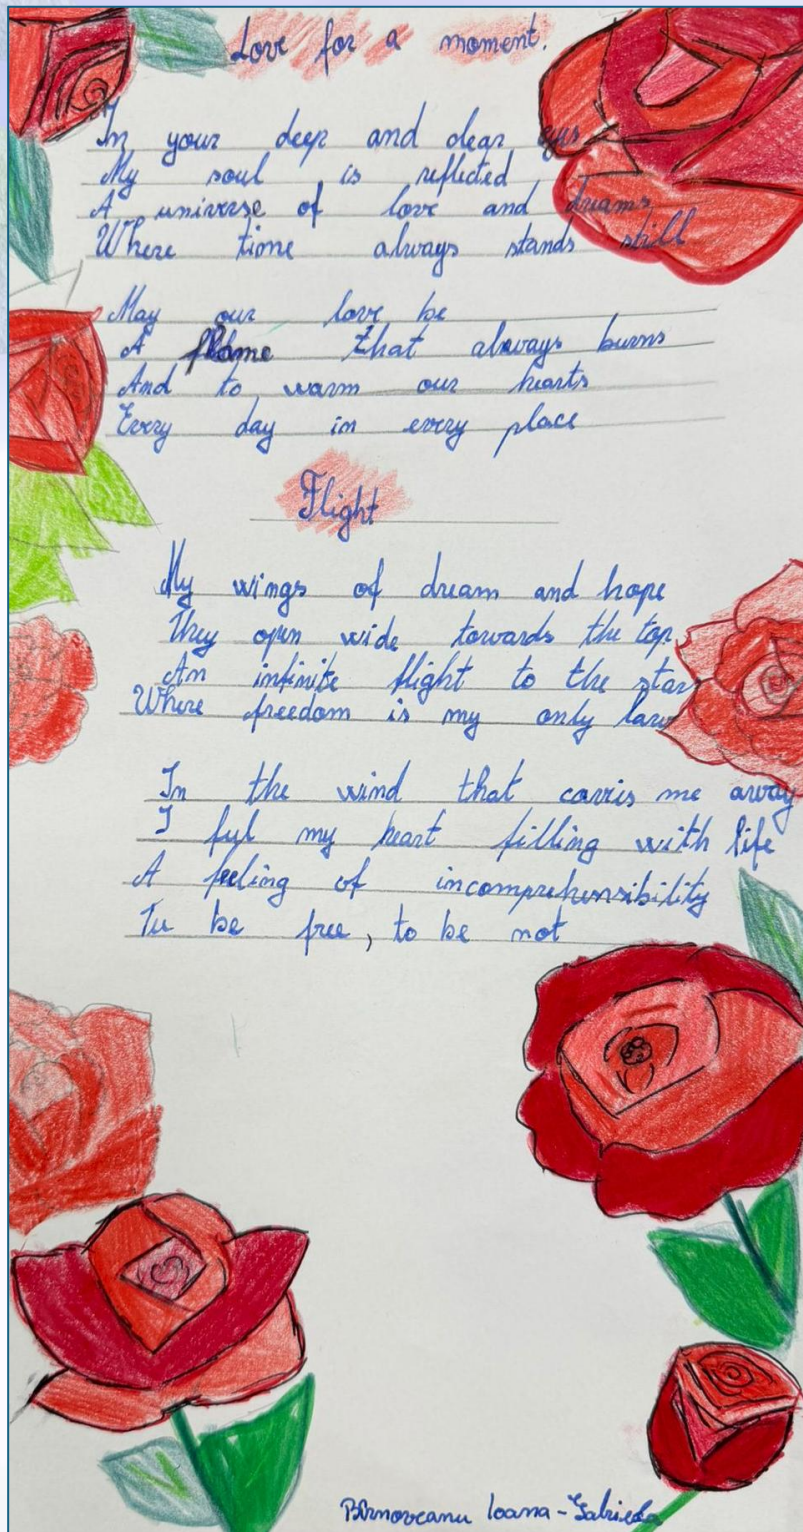 Love for a moment.
In your deep and clear eyes
My soul is reflected
A universe of love and dreams
Where time always stands still
May our love be
A flame that always burns
And to warm our hearts
Every day in every place
Flight
My wings of dream and hope
They open wide towards the top.
An infinite flight to the stars
Where freedom is my only law
In the wind that carris me away
I ful my heart filling with life
A feeling of incomprehensibility
Tu be free, to be not
Bîrnoveanu Ioana-Gabriela